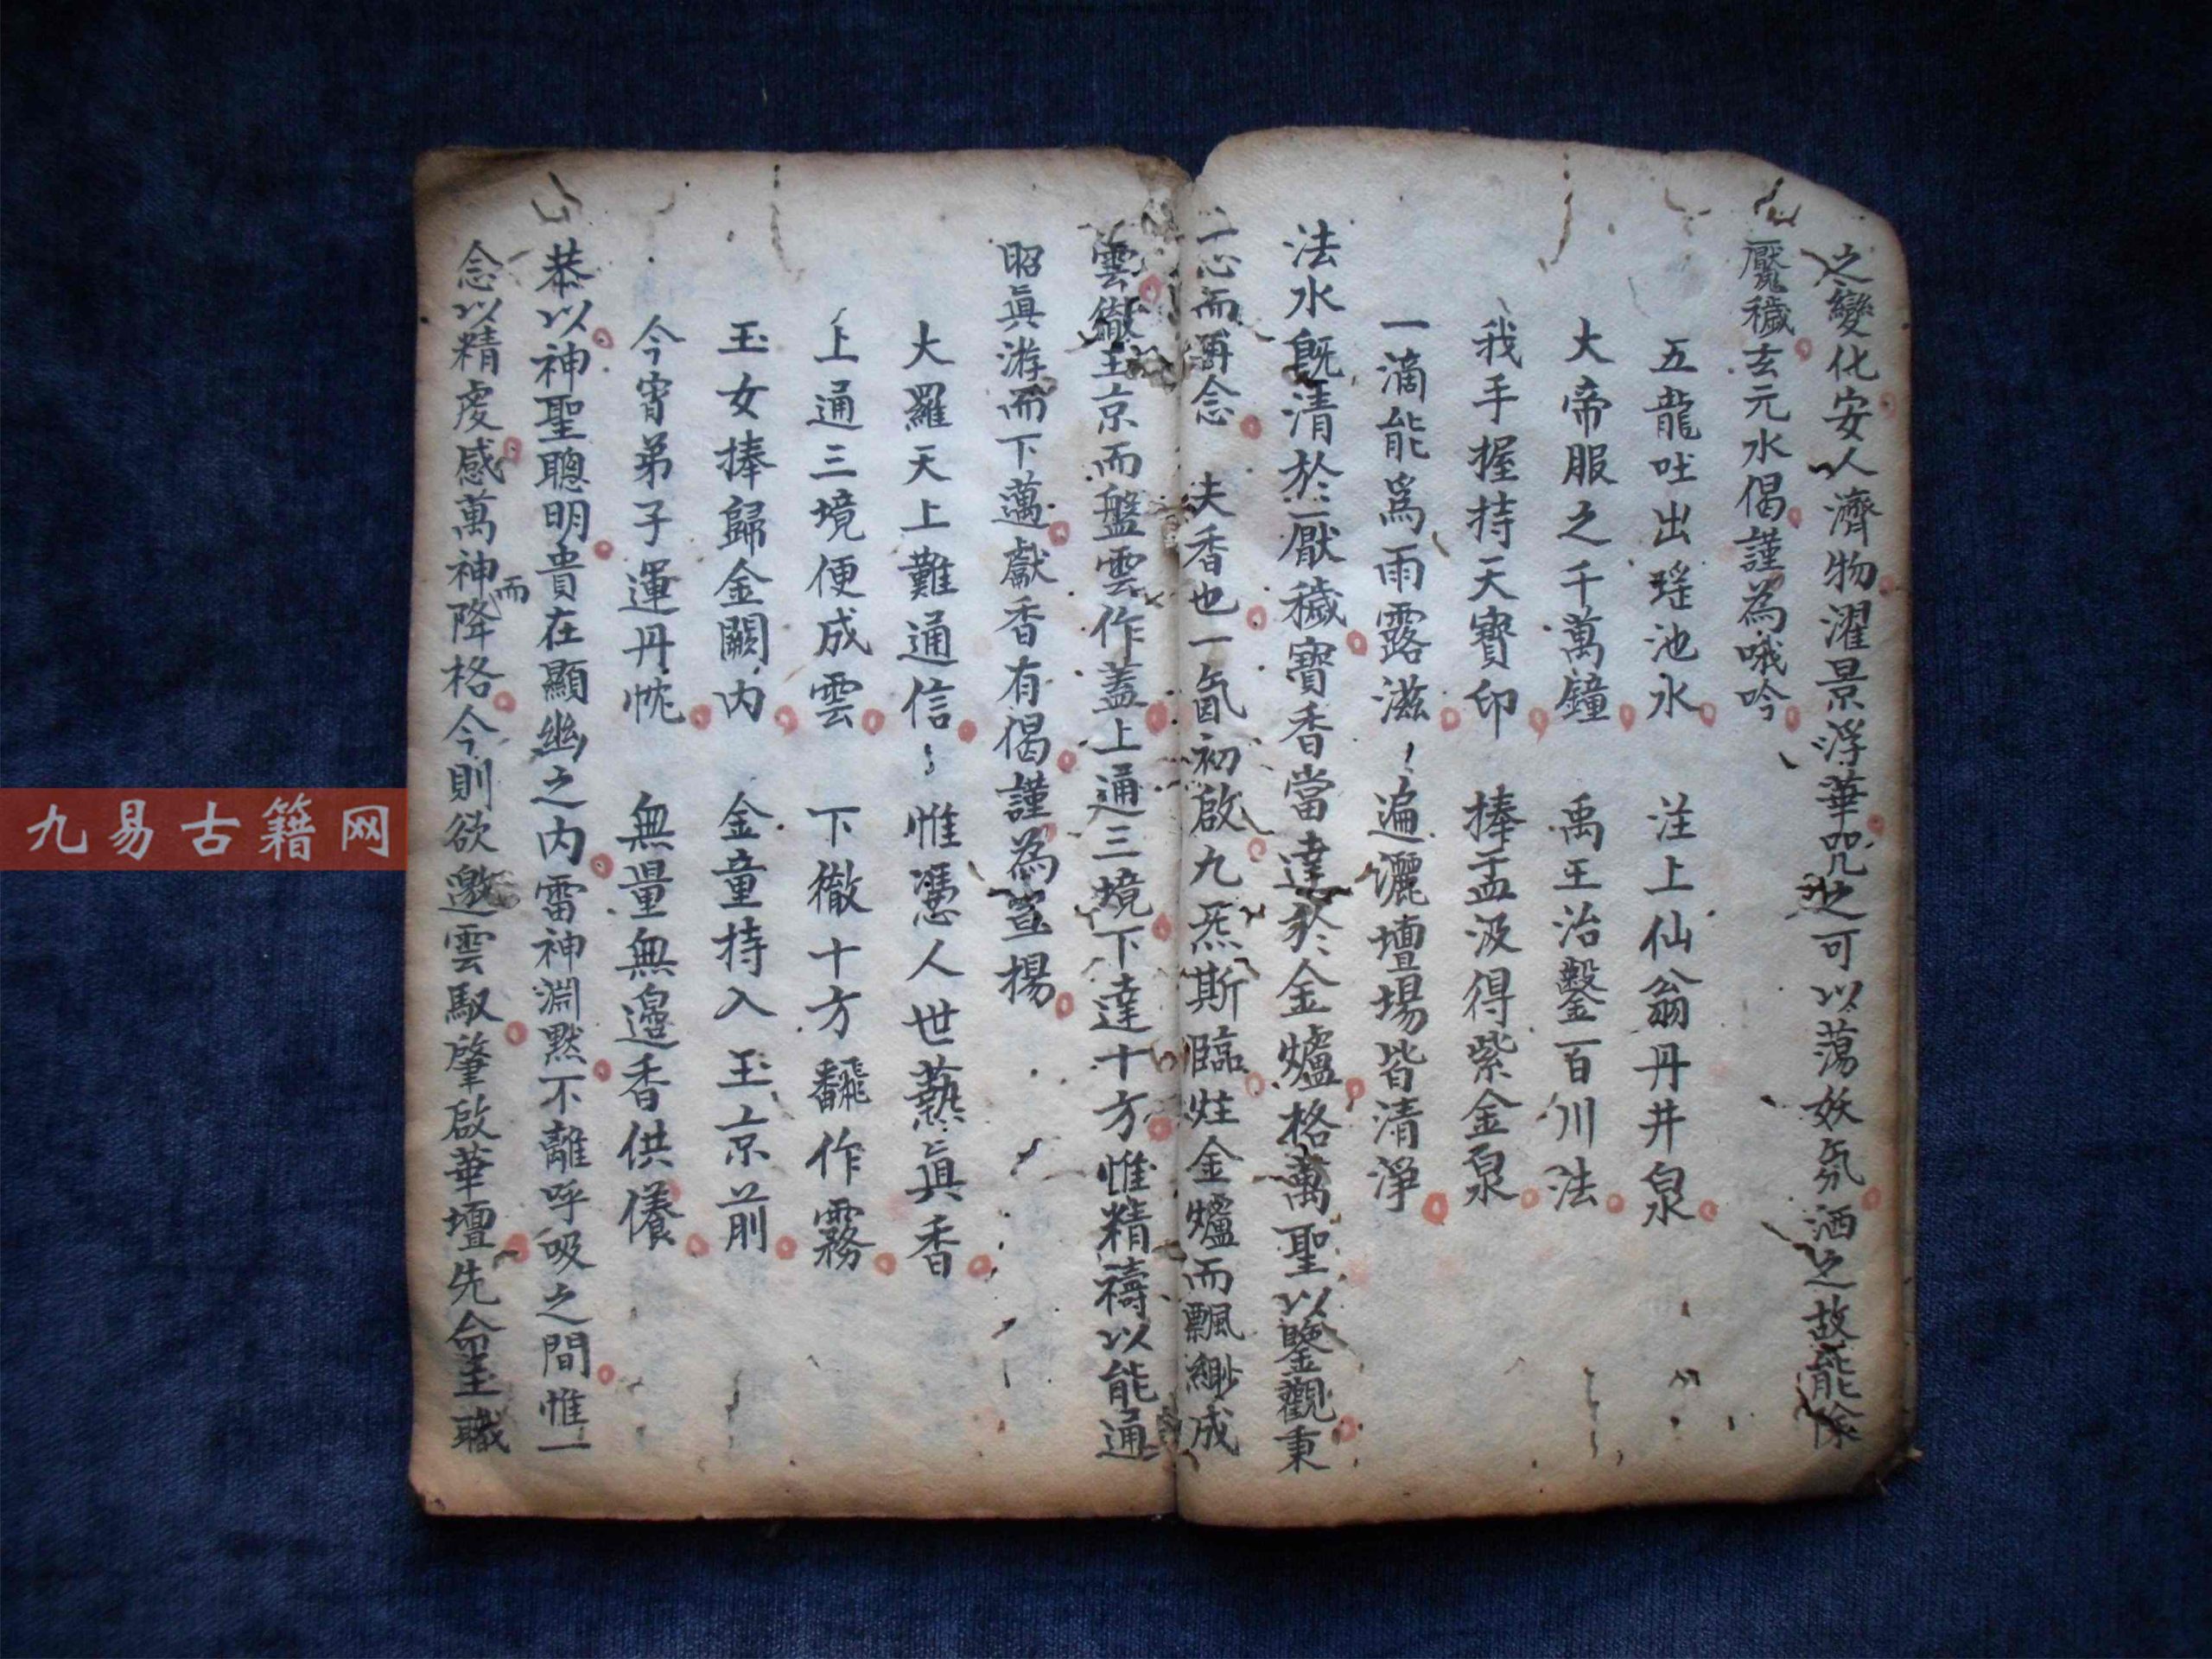 之變化安人濟物濯景浮華咒之可以蕩妖氛洒之故能除
魘穢去元水偈謹為哦吟
五龍吐出瑶池水 注上仙翁丹井泉
大帝服之千萬鐘 禹王治鑿百川法
我手握持天寶印 捧盂汲得紫金泉
一滴能爲雨露滋 遍灑壇場皆清淨
法水既清於厭穢寶香當達於金爐格萬聖以鑒觀秉
一心而再念 夫香也一氤初啟九炁斯臨炷金爐而飄緲成
雲徹玉京而盤雲作蓋上通三境下達十方惟精禱以能通
昭真游而下邁獻香有偈謹為宣揚
大羅天上難通信 惟憑人世爇真香
上通三境便成雲 下徹十方飜作霧
玉女捧歸金闕内 金童持入玉京前
今宵弟子運丹忱 無量無邊香供儀
恭以神聖聰明貴在顯幽之内雷神淵默不離呼吸之間惟一
念以精虔感萬神而降格今則欲邀雲馭肇啟華壇先命主職
九易古籍网